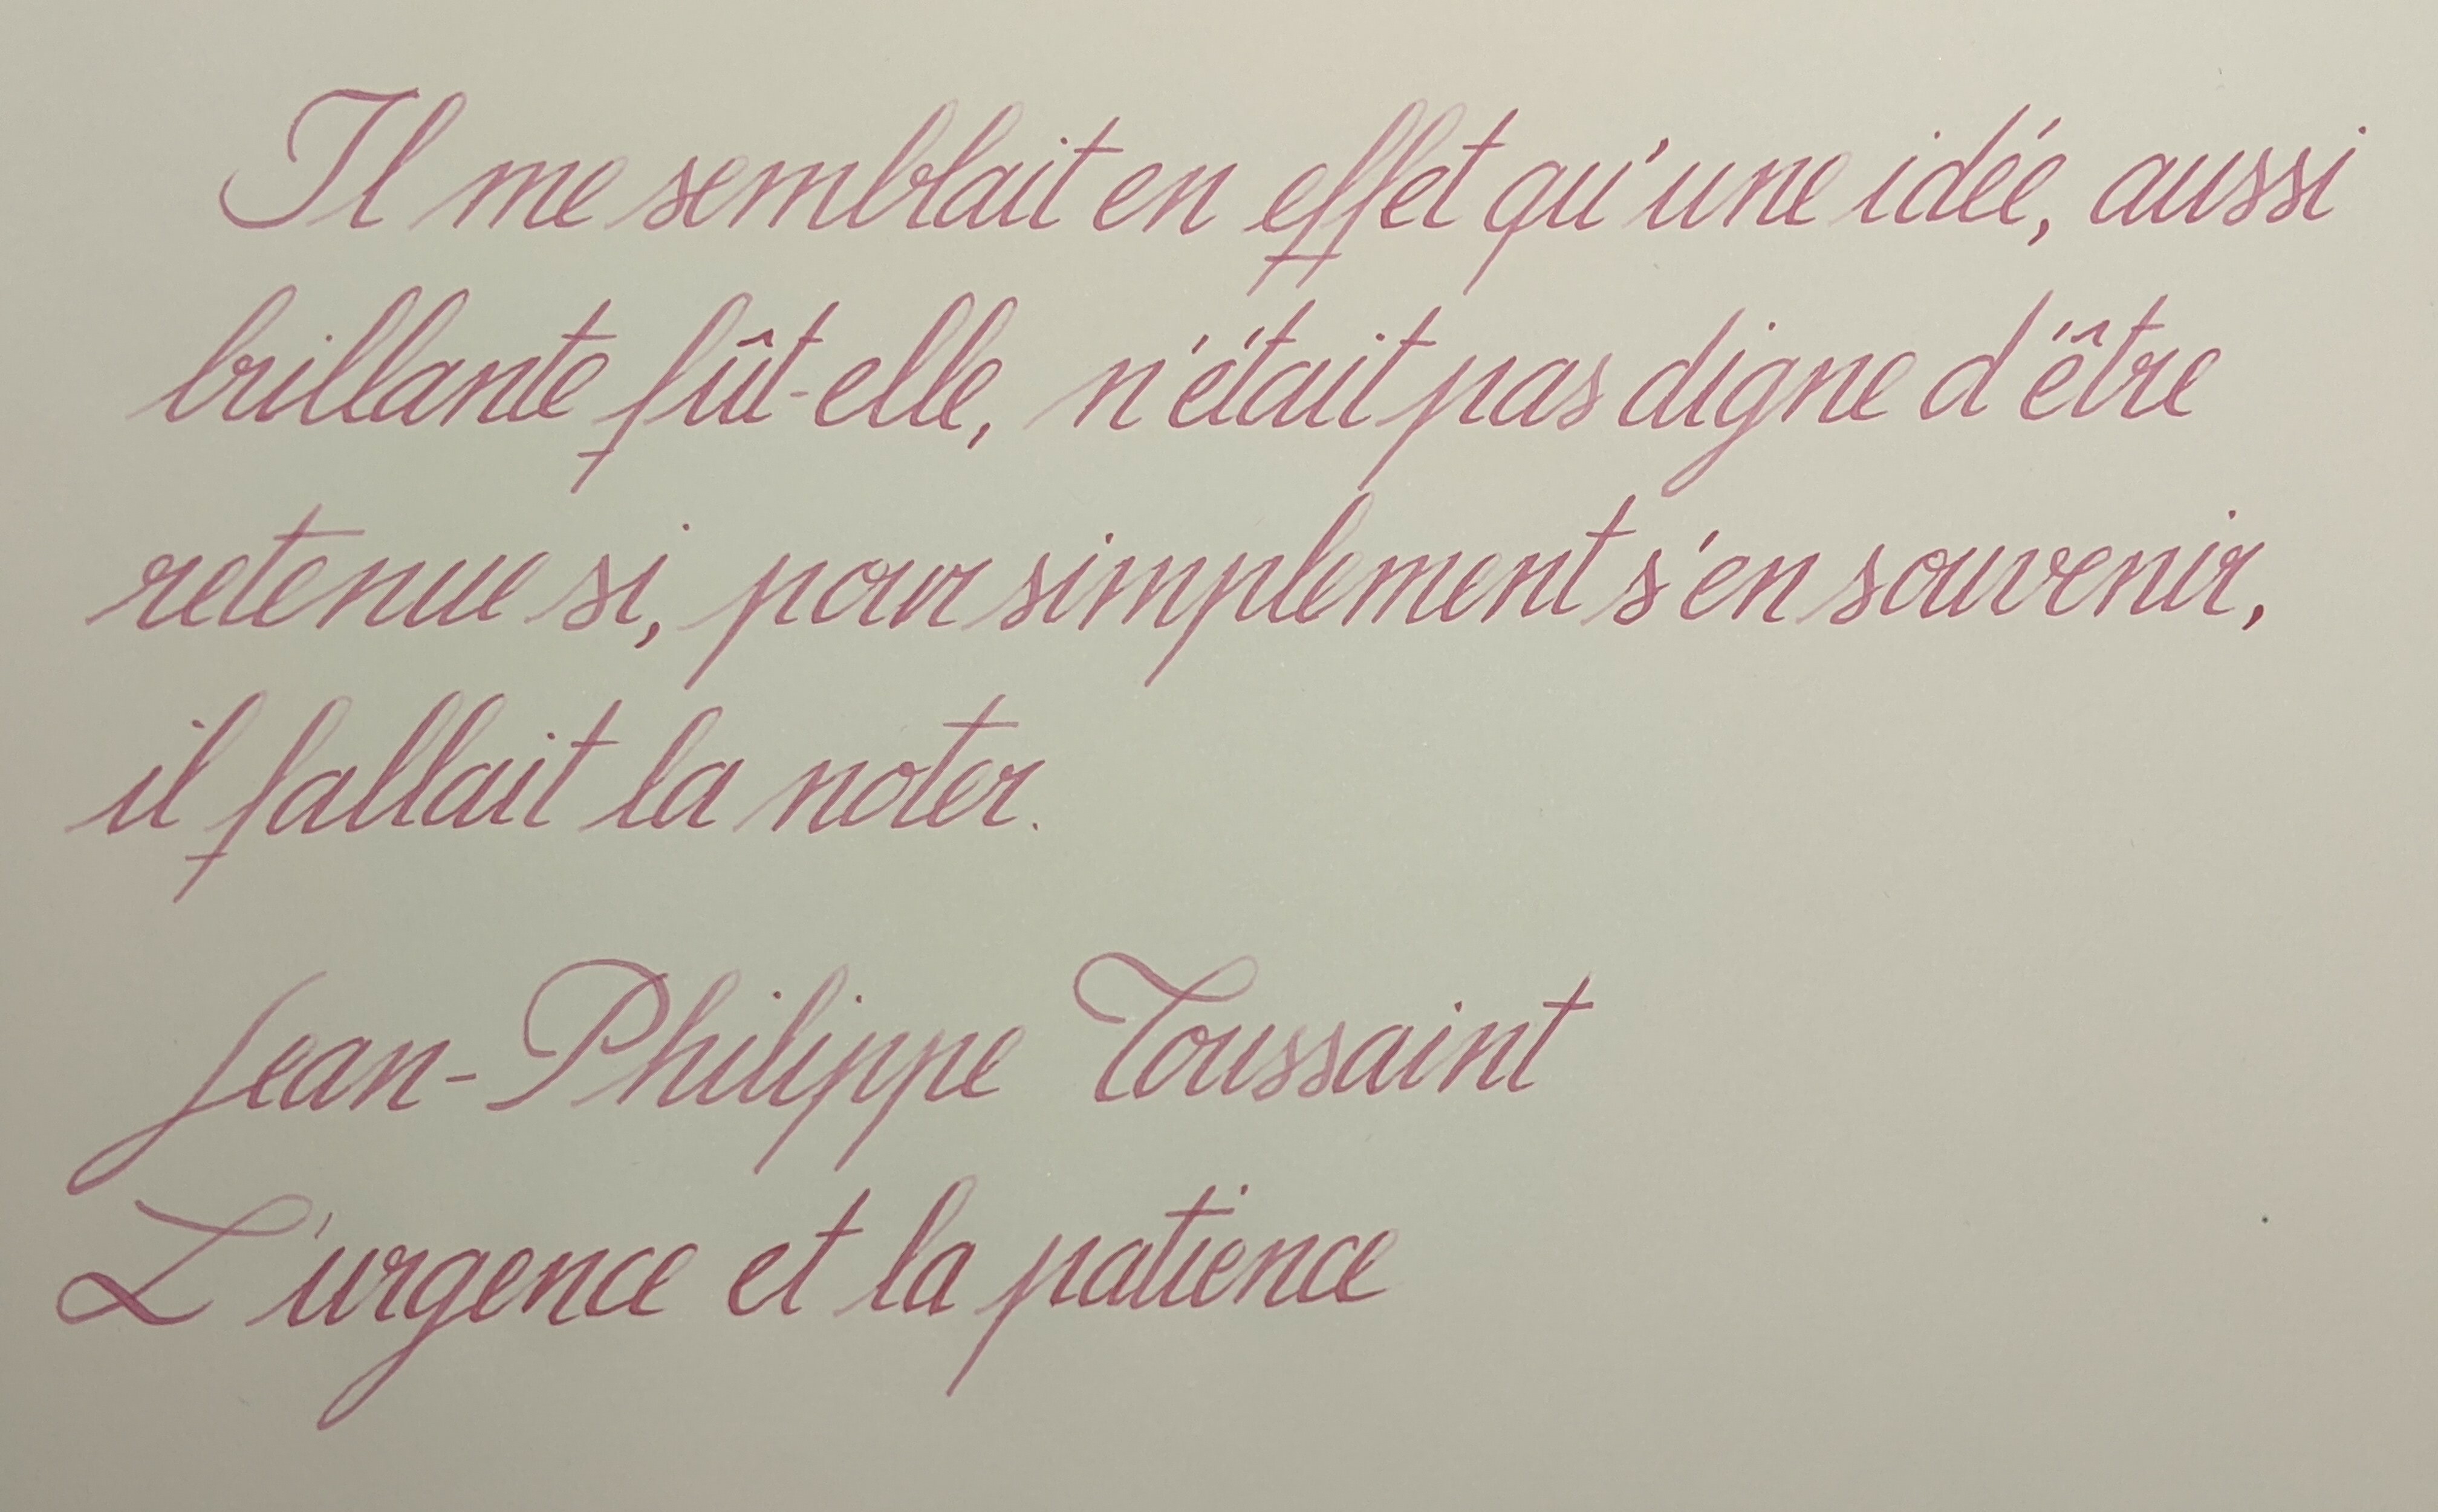 Il me semblait en effet qu'une idée, aussi
brillante fût-elle, n'était pas digne d'être
retenue si, pour simplement s'en souvenir,
il fallait la noter.
Jean-Philippe Toussaint
L'urgence et la patience